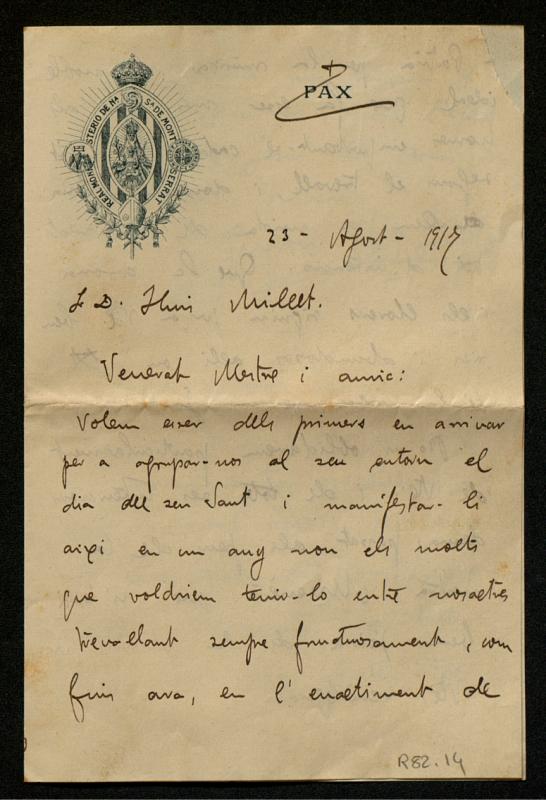 REAL MONASTERIO DE Nª Sª DE MONTSERRAT
PAX
23 - Agost - 1917
D. Lluis Millet.
Venerat Mestre i amic:
Volem esser dels primers en arrivar
per a agrupar-nos al seu entorn el
dia del seu Sant i manifestar-li
aixi en un any nou els molts
que voldriem tenir-lo entre nosaltres
trevallant sempre fructuosament, com
fins ara, en l'enaltiment de
R82.14